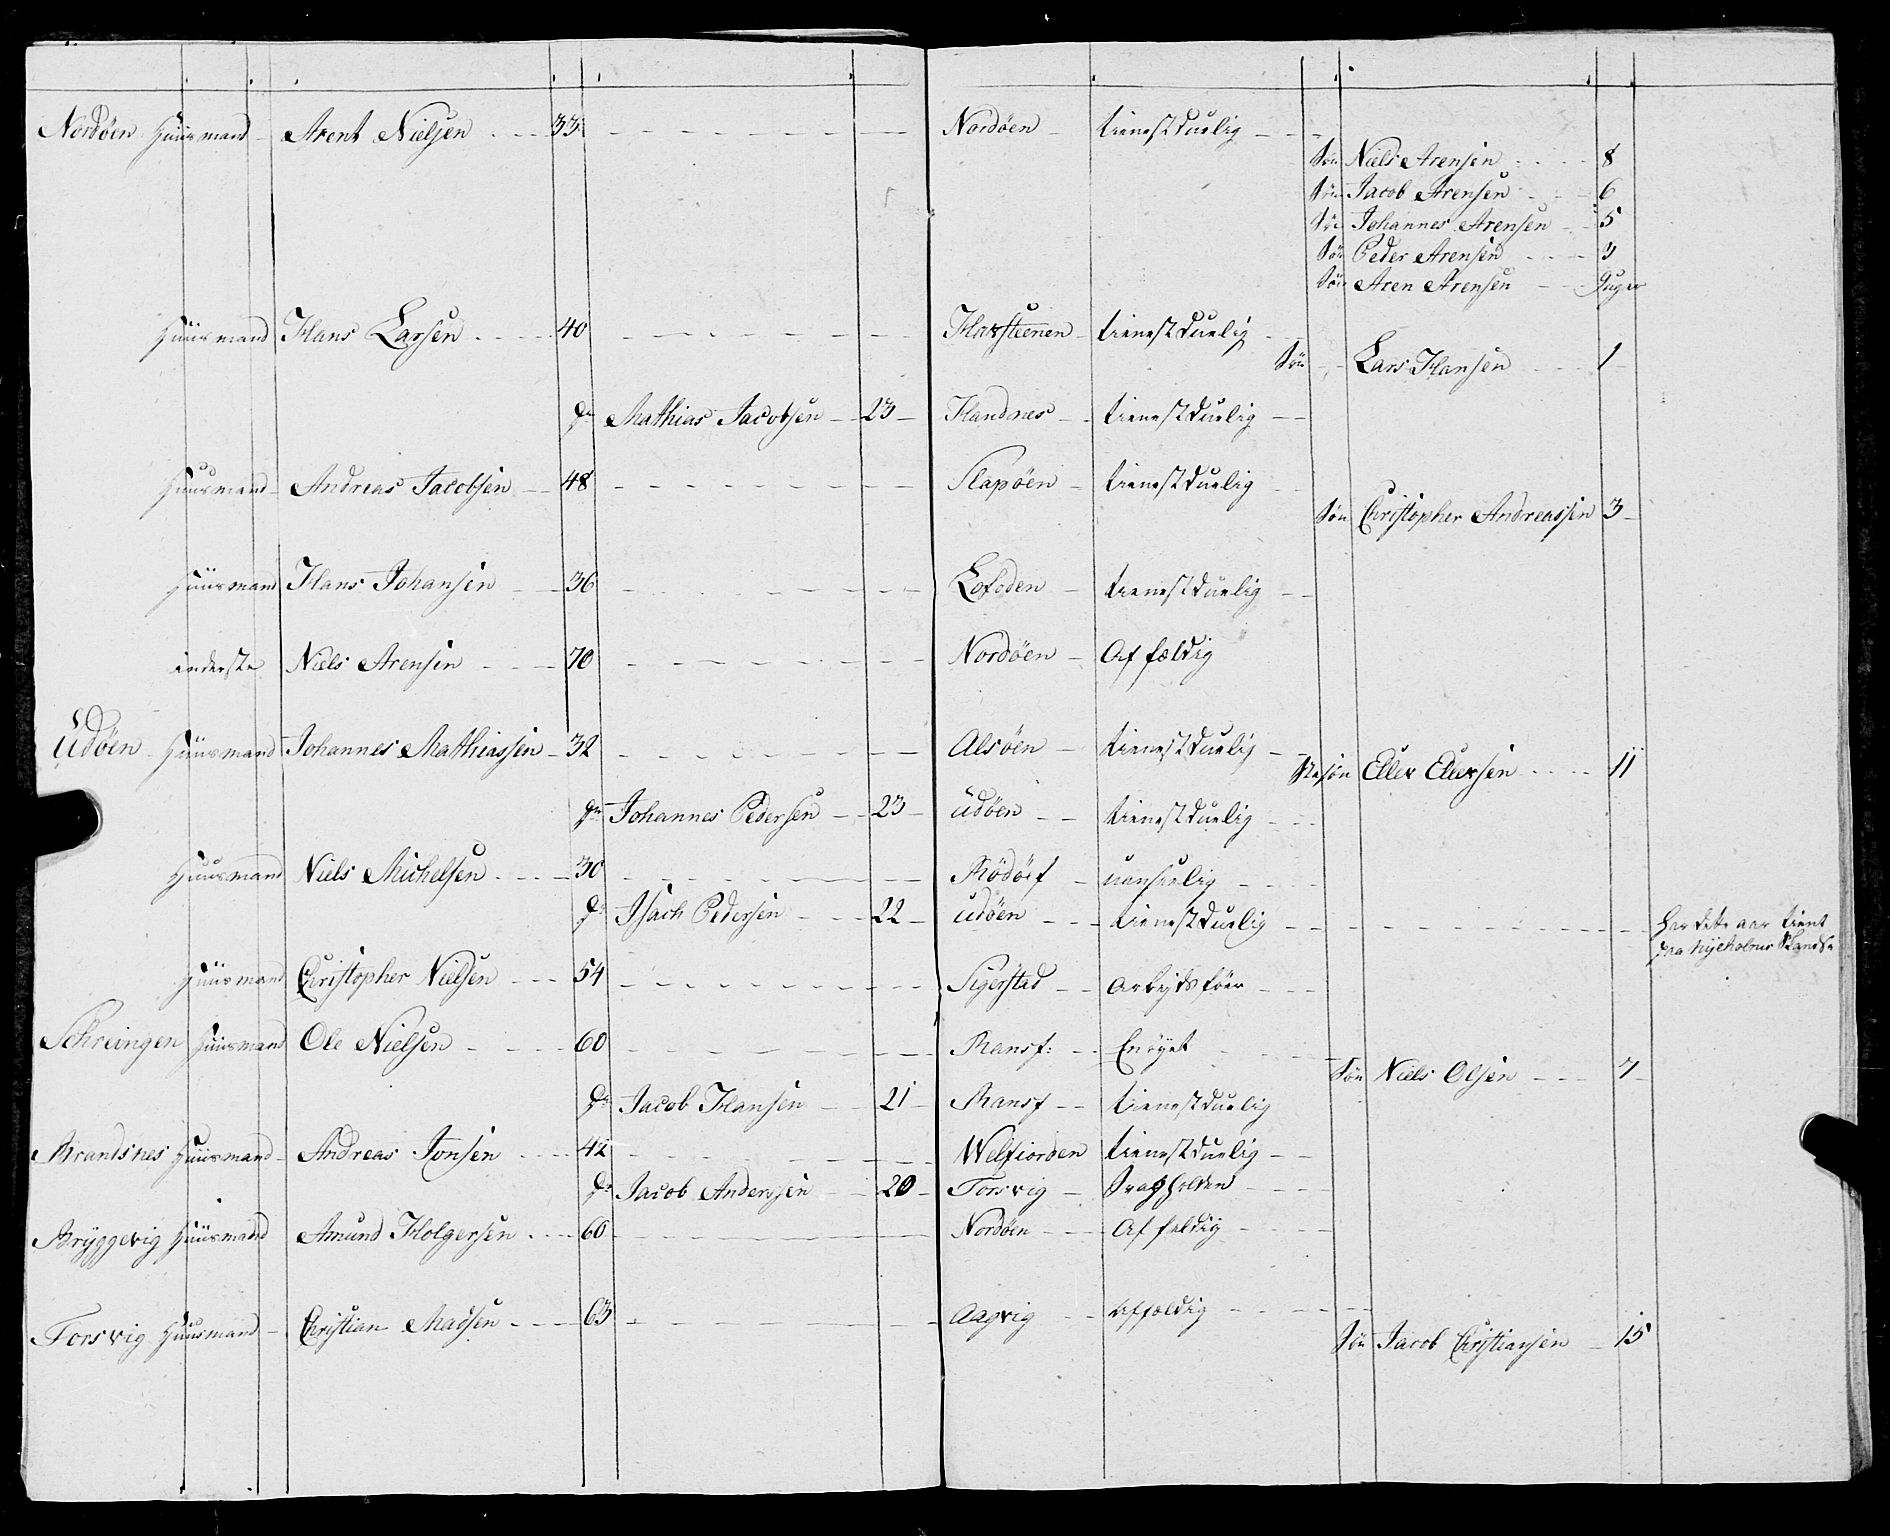 Nordøen Huusmand Arent Nielsen 33 Nordøen tienestduelig
Søn Niels Arensen 8
Søn Jacob Arensen 6
Søn Johannes Arensen 5
Søn Peder Arensen 3
Søn Aren Arensen 9uger
Huusmand Hans Larsen 40 tienestduelig
Søn Lars Hansen 1
Mathias Jacobsen 23 Handnes tienestduelig
Huusmand Andreas Jacobsen 48 Slapøen tienestduelig
Søn Christopher Andreassen 3
Huusmand Hans Johansen 36 Lofoden tienestduelig
inderste Niels Arensen 70 Nordøen Affældig
Udøen Huusmand Johannes Mathiassen 32 Alsøen tienestduelig
Stesøn Eller Ellersen 11
Johannes Pedersen 23 Udøen tienestduelig
Huusmand Niels Michelsen 30 Rødøef uanseelig
Isach Pedersen 22 Udøen tienestduelig Har dette aar tient
paa Nyeholms Skandse
Huusmand Christopher Nielsen 54 Sigerstad Arbejdsføer
Schreingen Huusmand Ole Nielsen 60 Ransf: Enøyet
Søn Niels Olsen 7
Jacob Hansen 21 Ransf tienestduelig
Brandsnes Huusmand Andreas Jonsen 42 Welfiorden tienestduelig
Jacob Andersen 20 Forsvig
Bryggevig Huusmand Amund Holgersen 60 Nordøen Affeldig
Forsvig Huusmand Christian Madsen 63 Aagvig affældig
Søn Jacob Christiansen 15